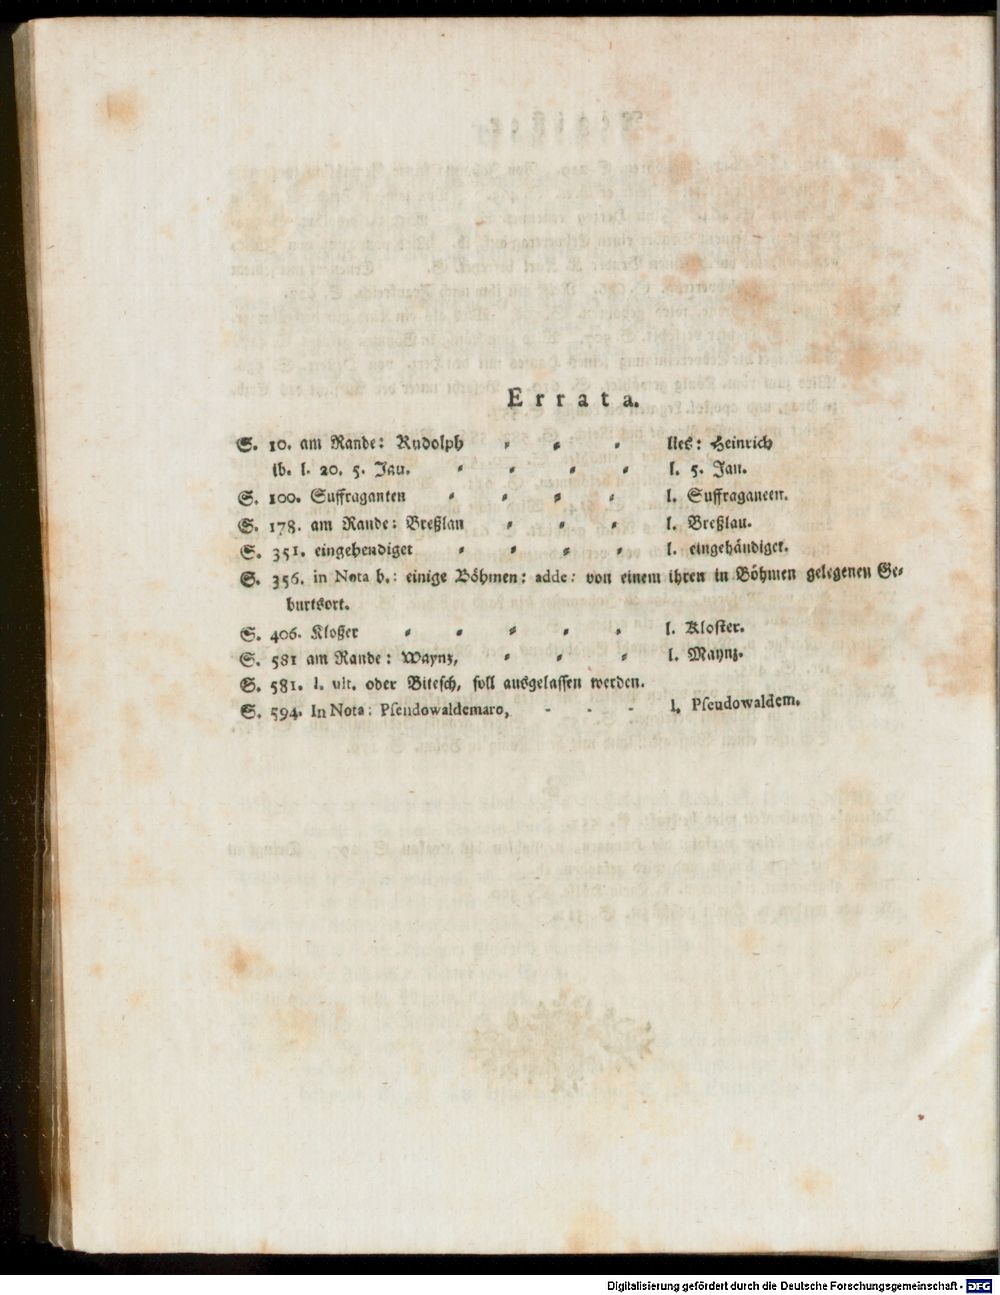 Errata.
S. 10. am Rande: Rudolph = = = lies: Heinrich
ib. l. 20. 5. Jau. = = = = l. 5. Jan.
S. 100. Suffraganten = = = = l. Suffraganeen.
S. 178. am Rande: Breßlan = = = l. Breßlau.
S. 351. eingehendiget = = = = l. eingehändiget.
S. 356. in Nota b.: einige Böhmen: adde: von einem ihren in Böhmen gelegenen Ge=
burtsort.
S. 406. Kloßer = = = = = l. Kloster.
S. 581 am Rande: Waynz, = = = l. Maynz.
S. 581. l. ult. oder Bitesch, soll ausgelassen werden.
S. 594. In Nota: Pseudowaldemaro, - - - l. Pseudowaldem.
Digitalisierung gefördert durch die Deutsche Forschungsgemeinschaft - DFG